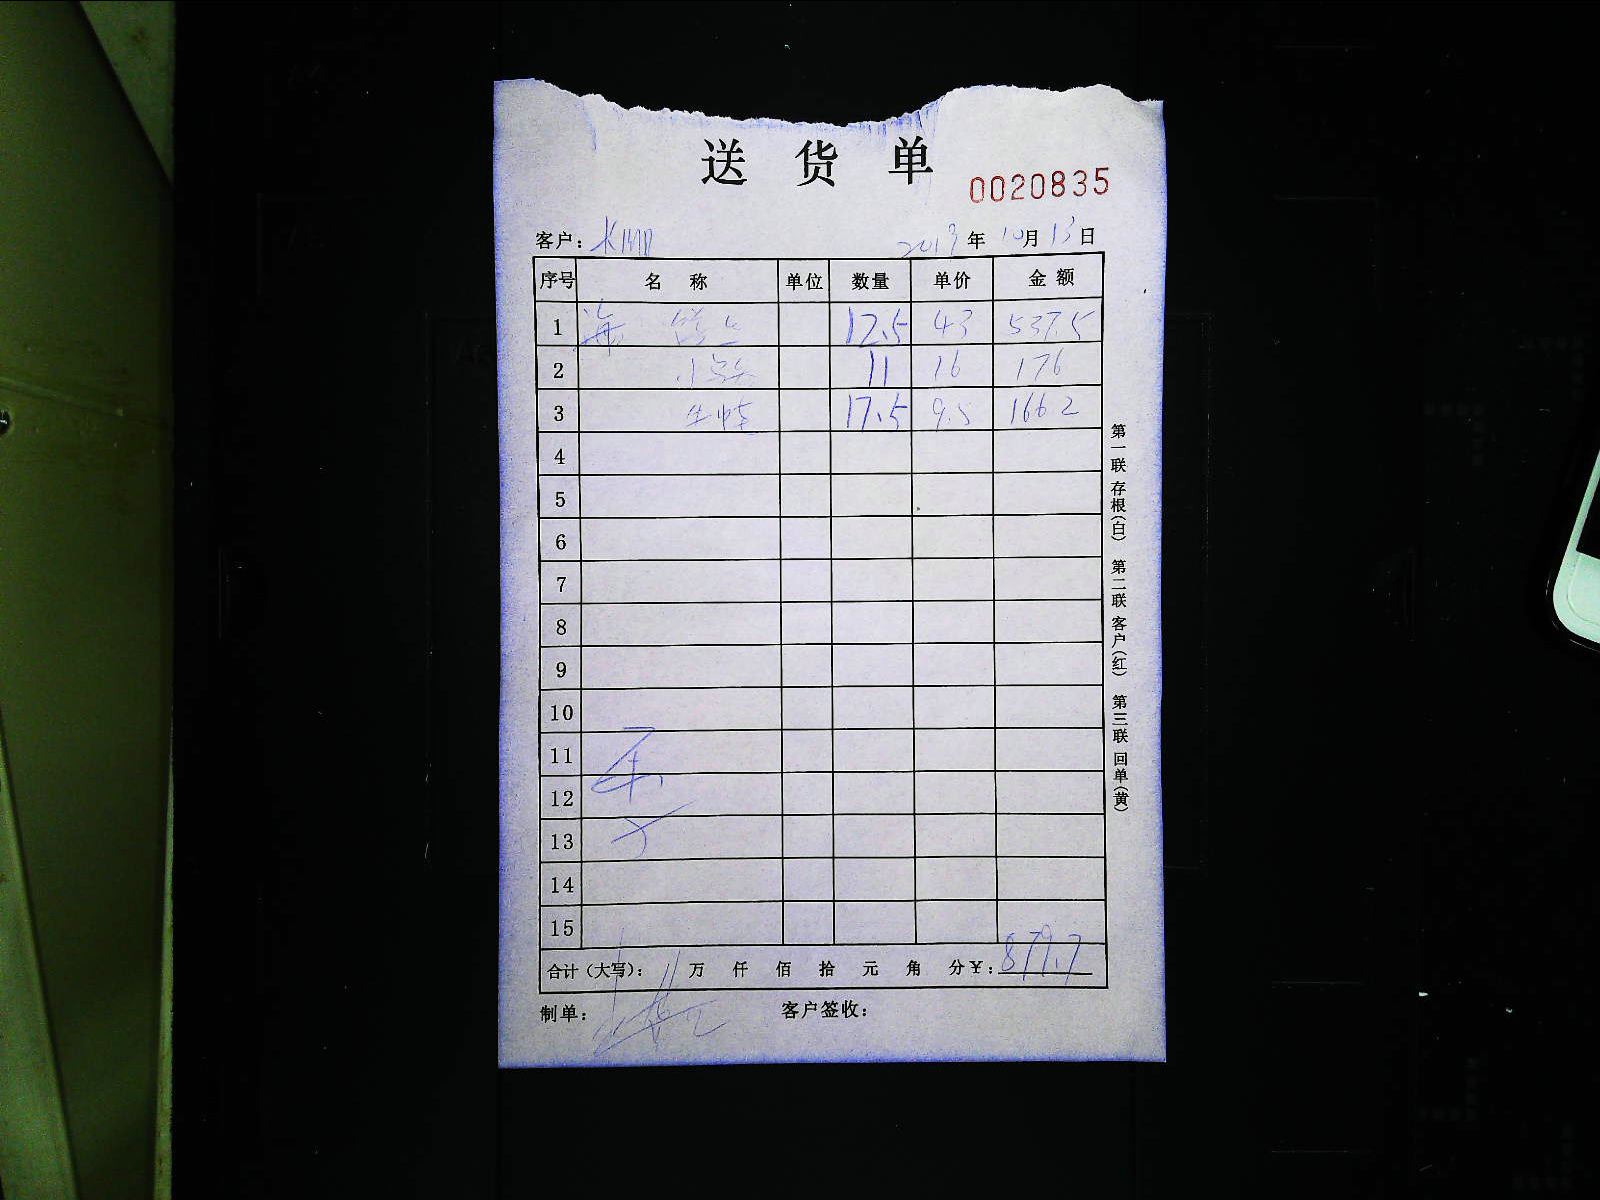 送 货 单
0020835
客户: 2019年10月13日
序号 名 称 单位 数量 单价 金 额
1 海 12.5 43 537.5
2 11 16 176
3 生蚝 17.5 9.5 166.2
4
5
6
7
8
9
10
11
12
13
14
15
合计(大写): 万 仟 佰 拾 元 角 分¥: 879.7
制单: 客户签收:
第一联 存根(白) 第二联 客户(红) 第三联 回单(黄)